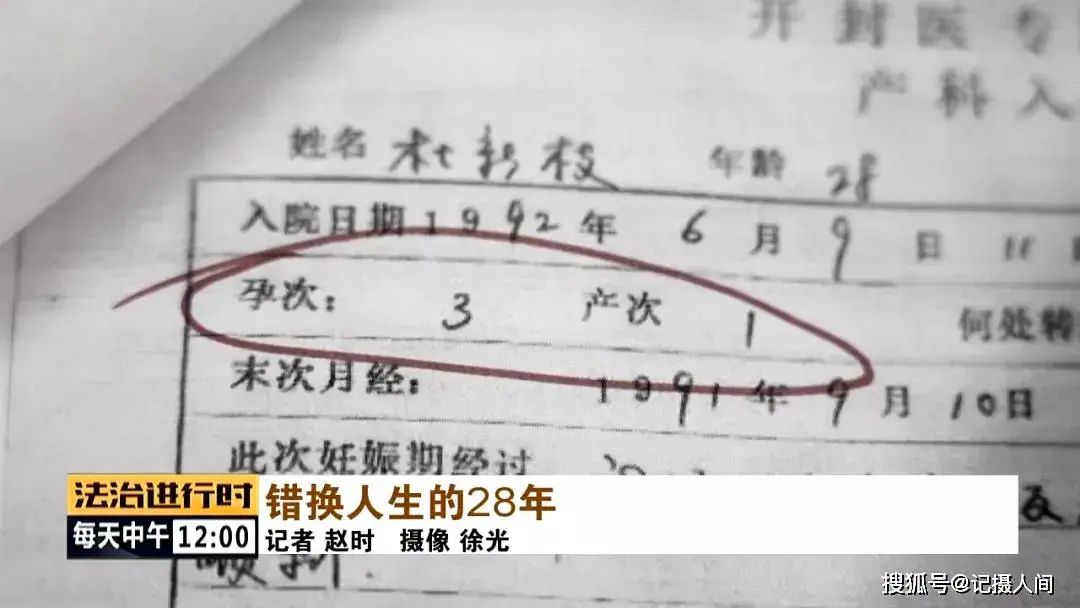 开封医专
产科入
姓名 杜新枝 年龄 28
入院日期 1992年 6月 9日 11
孕次： 3 产次 1 何处转
末次月经： 1991年 9月 10日
此次妊娠期经过
顺利.
法治进行时 错换人生的28年
每天中午 12:00 记者 赵时 摄像 徐光
搜狐号@记摄人间